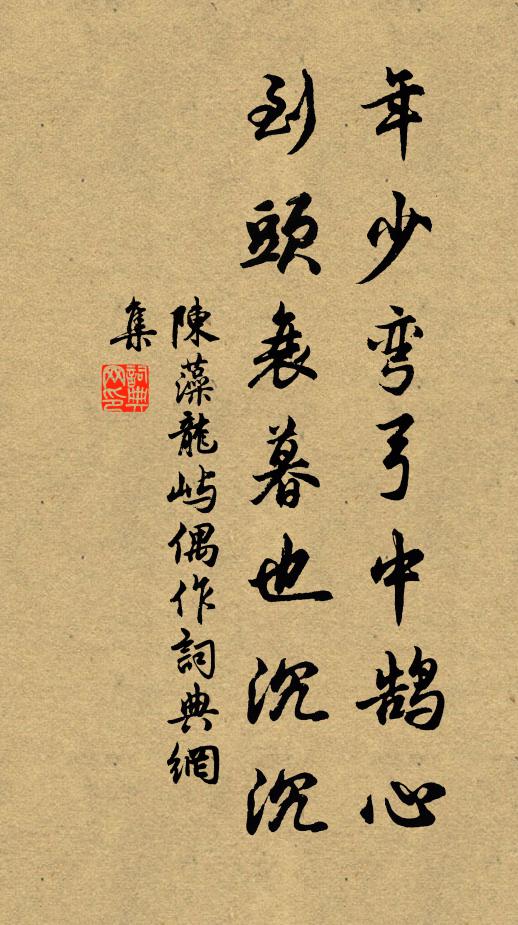 年少弯弓中鹄心
到頭衰暮也沉沉
陳藻龍屿偶作詞典網
集
詞典网印